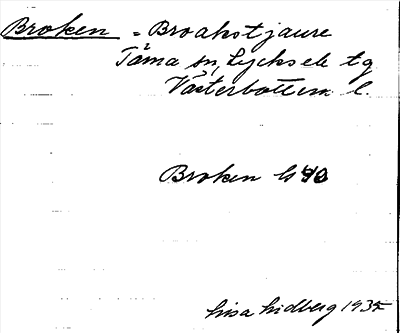 Broken = Broakstjaure
Tärna sn, Lycksele tg
Västerbottens l.
Broken
Lisa Lidberg 1935